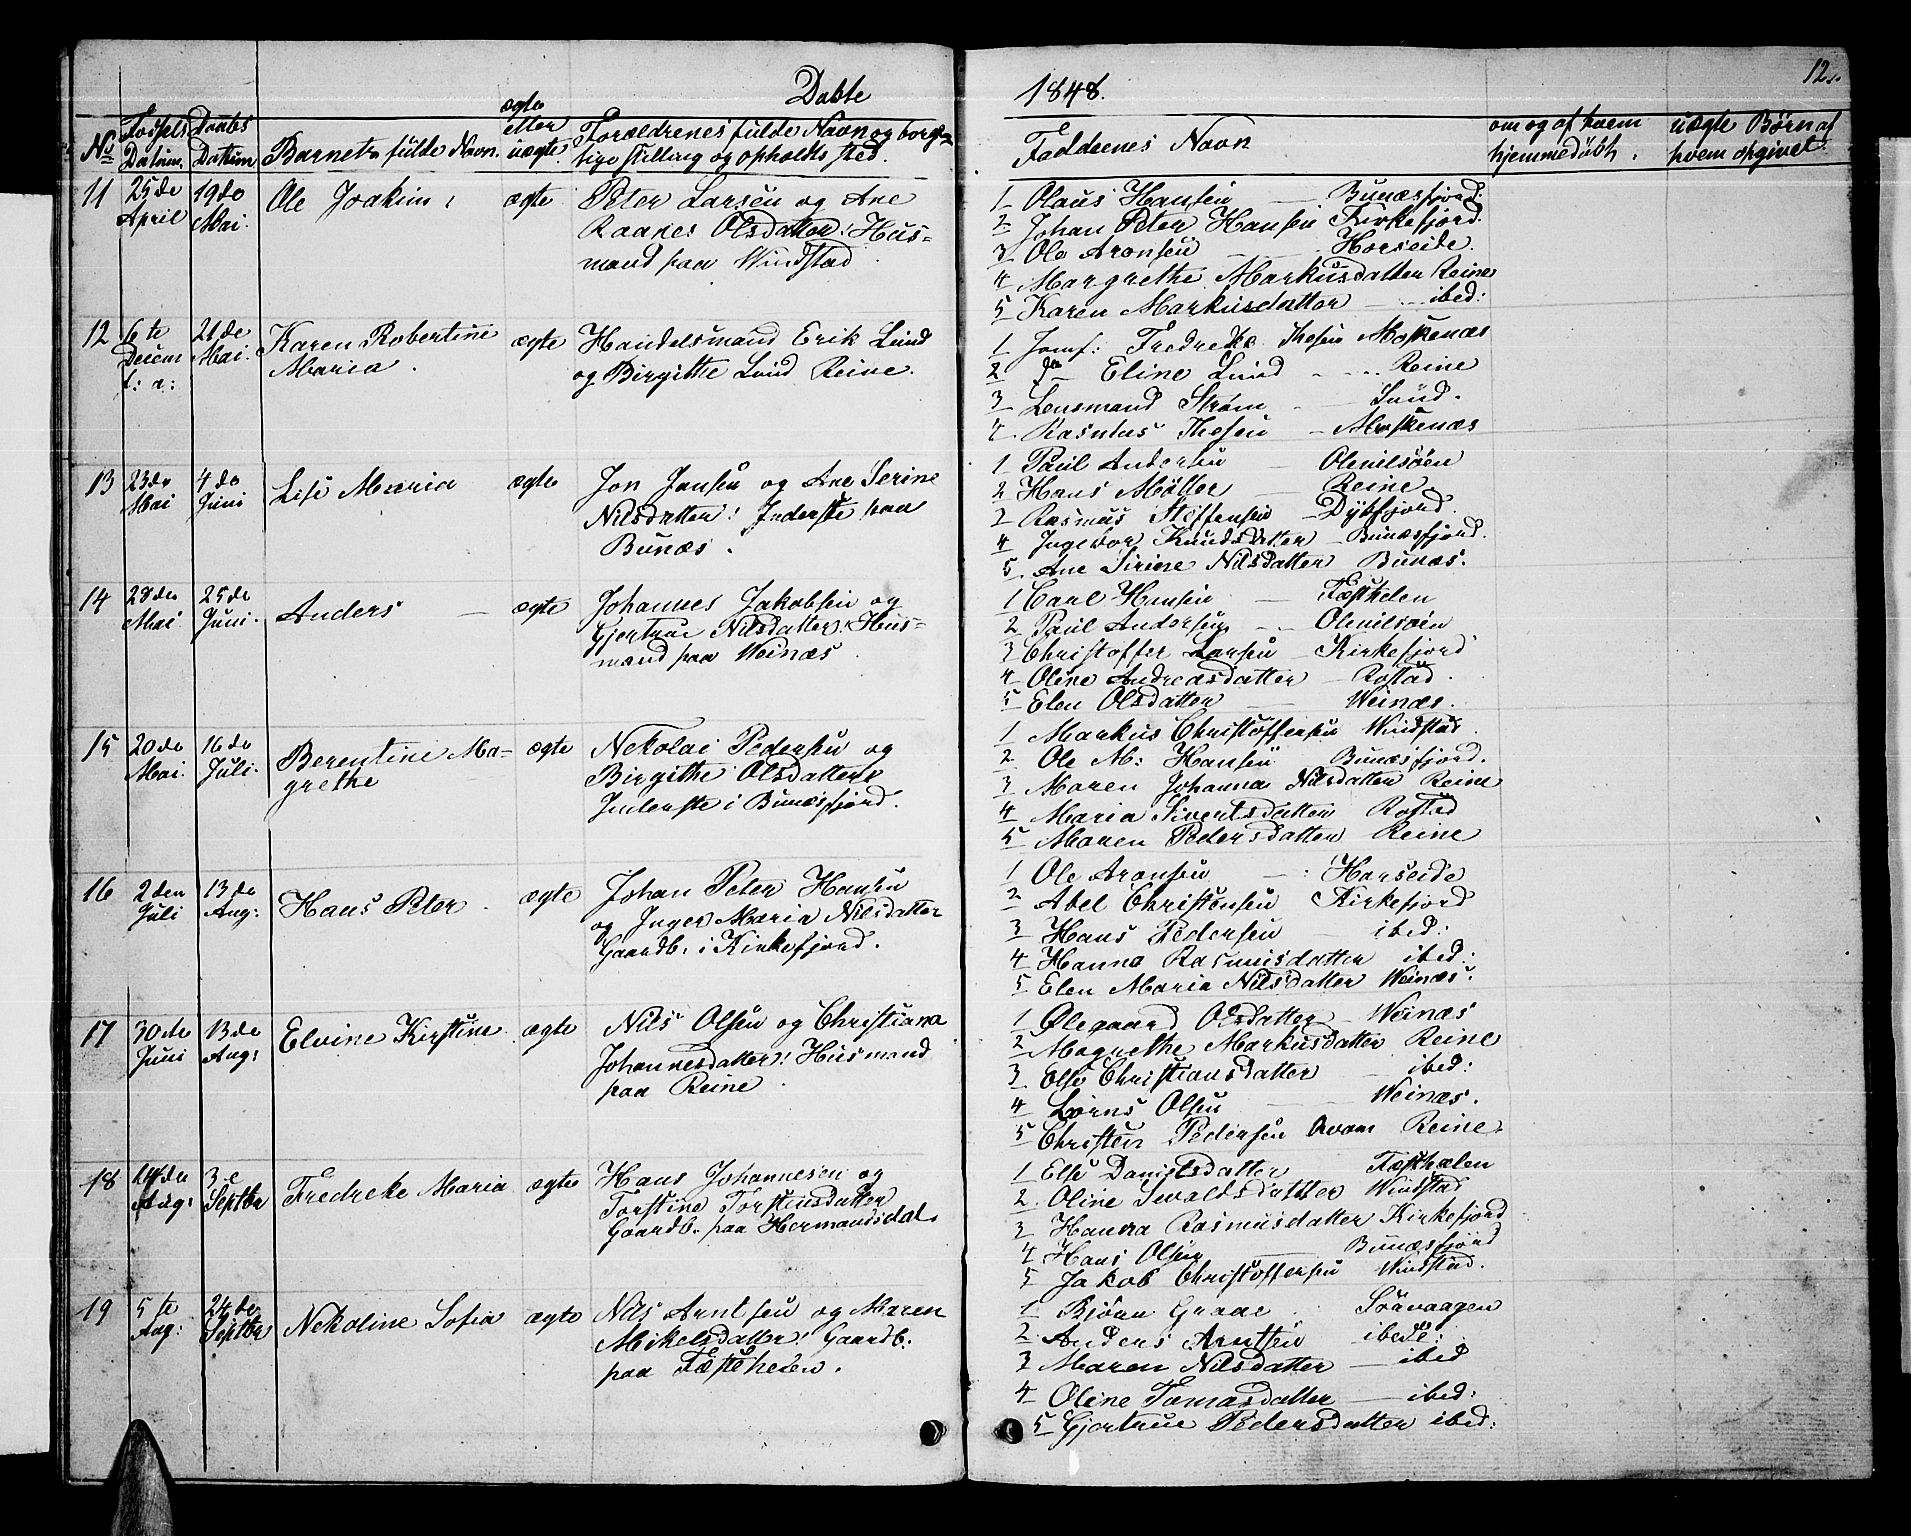 Døbte 1848.
12.
No
Fødsels Datum.
Daabs Datum
Barnets fulde Navn.
ægte eller uægte
Forældrenes fulde Navn og borger-
lige stilling og opholds sted.
Faddrenes Navn
om og af hvem
hjemmedøbt.
uægte Børn af
hvem opgivet.
11
25de April
19de Mai.
Ole Joakim
ægte
Peter Larsen og Ane
Olsdatter: Hus-
mand paa Windstad
1 Olaus Hansen Bunæsfjord.
2 Johan Peter Hansen Kirkefjord.
3 Ole Aronsen Horseide.
4 Margrethe Markusdatter Reine
5 Karen Markusdatter ibid:
12
6te Decem f: a:
21de Mai.
Karen Robertine
Maria.
ægte
Handelsmand Erik Lund
og Birgithe Lund Reine.
1 Jomf: Fredreke Thesen Moskenæs
2 do Eline Lund Reine
3 Lensmand Strøm Sund.
4. Rasmus Thesen Moskenæs
13
23de Mai
4de Juni
Lise Maria
ægte
Jon Jonsen og Ane Serine
Nilsdatter: Inderste paa
Bunæs.
1 Paul Andersen Olenilsøen
2 Hans Møller Reine
3 Rasmus Steffensen Dybfjord.
4 Ingebor Knudsdatter Bunæsfjord.
5. Ane Sirine Nilsdatter Bunæs.
14
28de Mai
25de Juni.
Anders
ægte
Johannes Jakobsen og
Gjertrue Nilsdatter: Hus-
mand paa Weinæs.
1 Carl Hansen Fæsthelen
2 Paul Andersen Olenilsøen
3 Christoffer Larsen Kirkefjord
4 Oline Andreasdatter Rostad.
5 Elen Olsdatter Weinæs.
15
20de Mai.
16de Juli.
Berentine Ma-
grethe
ægte
Nekolai Pedersen og
Birgithe Olsdatter
Inderste i Bunæsfjord.
1 Markus Christoffersen Windstad.
2. Ole M: Hansen Bunæsfjord.
3 Maren Johanna Nilsdatter Reine
4 Maria Sivertsdatter Rostad
5 Maren Pedersdatter Reine
16
2den Juli
13de Aug:
Hans Peter.
ægte
Johan Peter Hansen
og Inger Maria Nilsdatter
Gaardb: i Kirkefjord.
1 Ole Aronsen Horseide
2 Abel Christensen Kirkefjord
3 Hans Pedersen ibid:
4 Hanna Rasmusdatter ibid:
5 Elen Maria Nilsdatter Weinæs.
17
30te Juni
13de Aug:
Elvine Kirstine.
ægte
Nils Olsen og Christiana
Johannesdatter: Husmand
paa Reine.
1 Olegaard Olsdatter Weinæs
2 Magrethe Markusdatter Reine
3. Else Christiansdatter ibed:
4 Lørns Olsen Weinæs.
5 Christen Pedersen Reine.
18
Aug:
3. Septbr
Fredreke Maria
ægte
Hans Johannesen og
Torstine Torstensdatter
Gaardb: paa Hermandsdal.
1 Else Danielsdatter Fæsthælen
2. Oline Iwaldsdatter Windstad
3 Hanna Rasmusdatter Kirkefjord
4 Hans Olsen Bunæsfjord
5 Jakob Christoffersen Windstad.
19
5te Aug:
24de Septbr
Nekoline Sofia
ægte
Nils Arntsen og Maren
Mikelsdatter: Gaardb:
paa Fæstehelen.
1 Bjørn Graae Sørvaagen
2 Anders Arntsen ibed:
3 Maren Nilsdatter ibed
4 Oline Tomasdatter ibed:
5 Gjertrue Pedersdatter ibed: